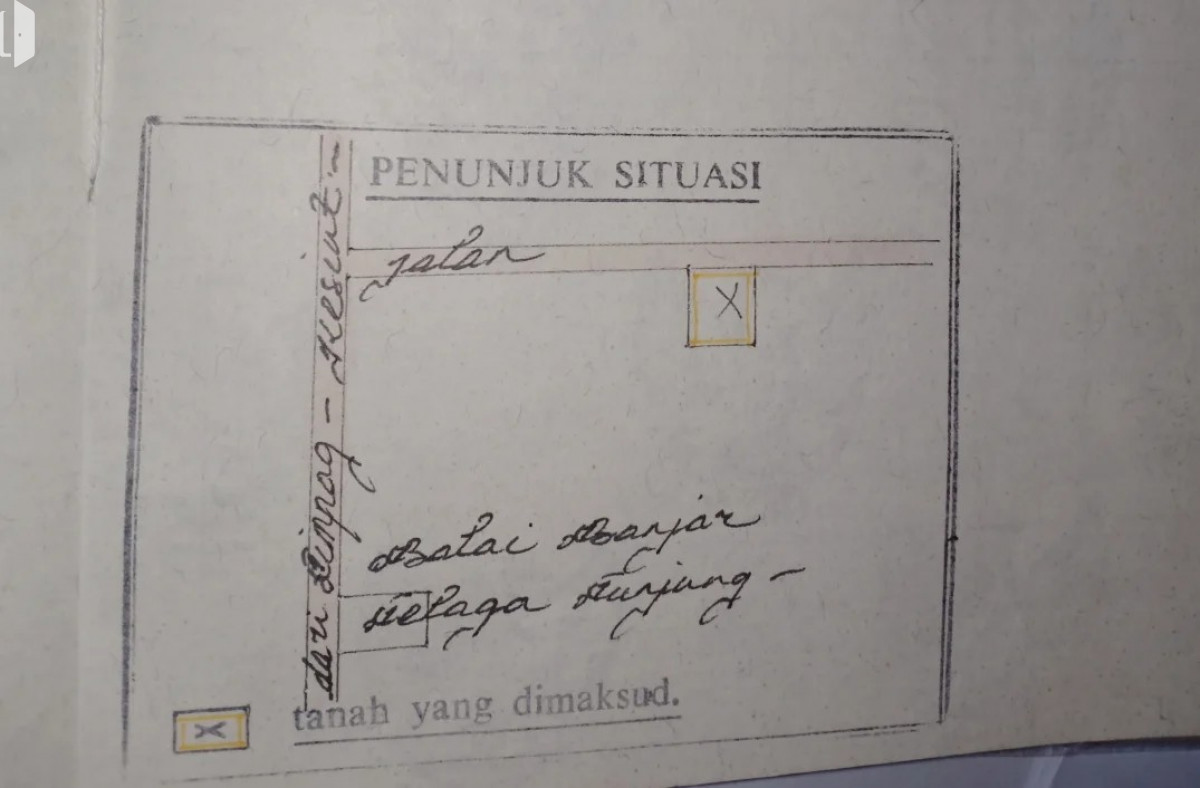 PENUNJUK SITUASI
jalan
dari Linpag - Kesiut -
Balai Banjar
Telaga Tunjung -
X
tanah yang dimaksud.
X